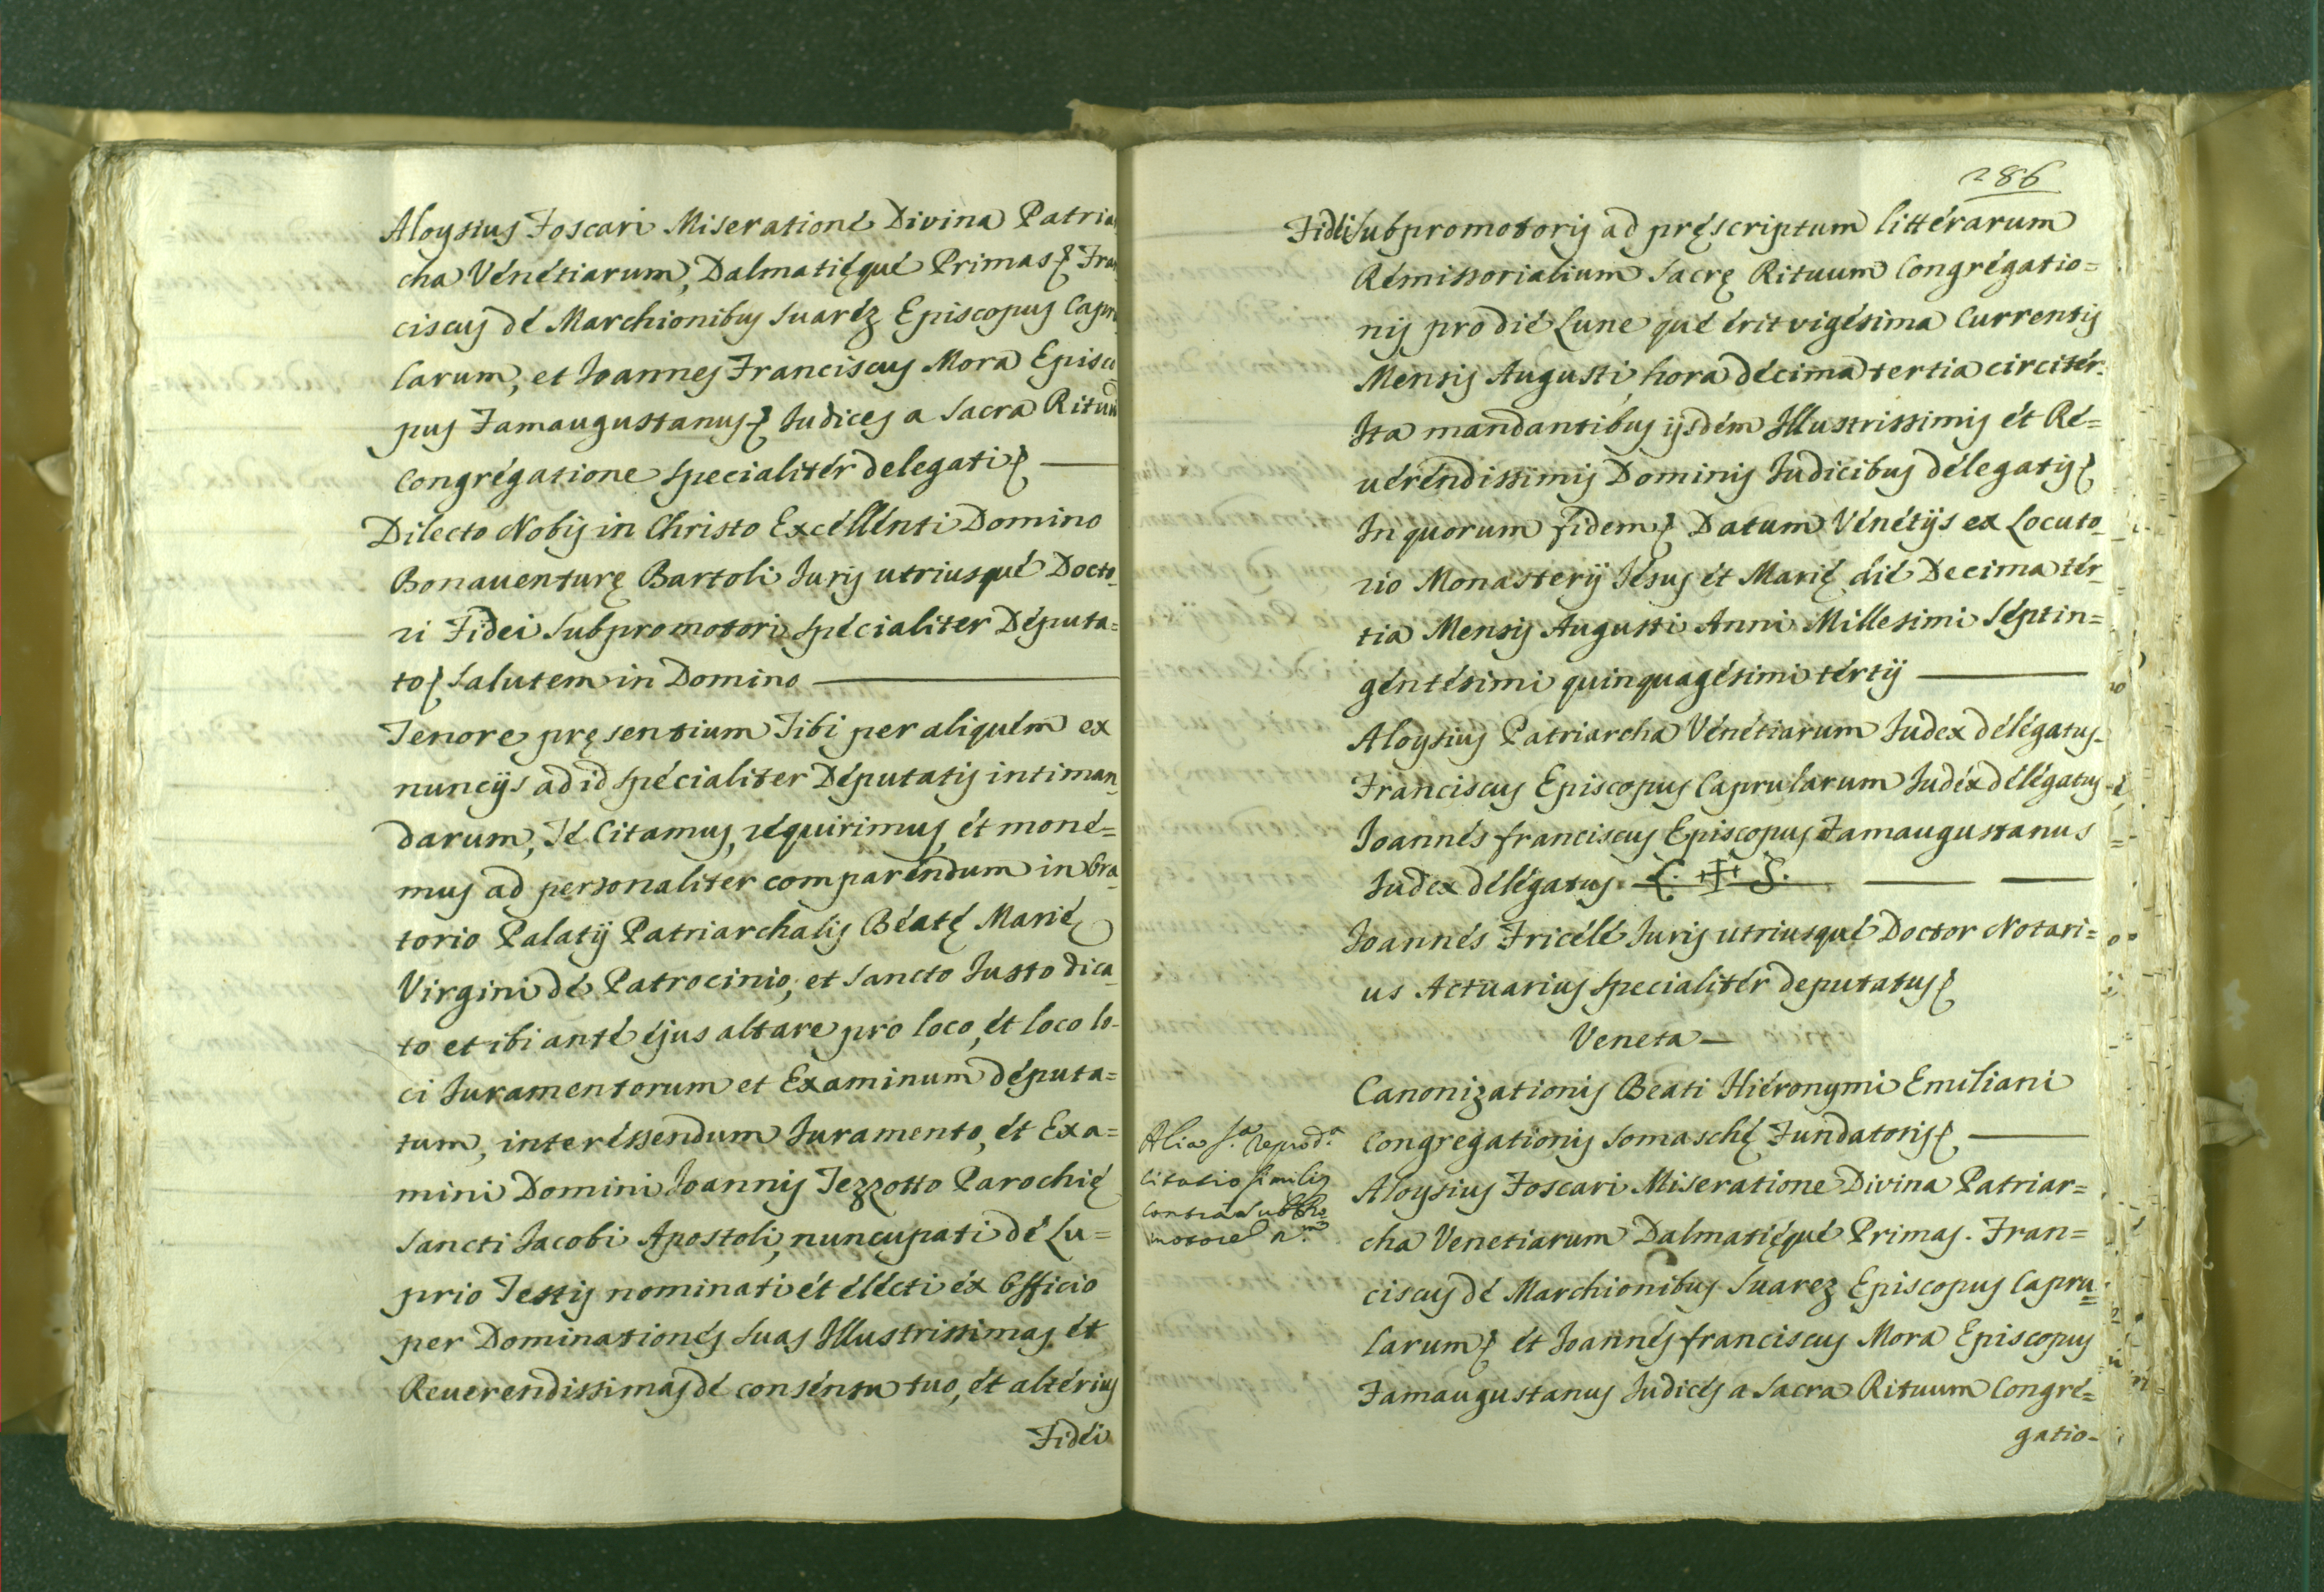 Aloysius Foscari Miseratione Divina Patriar
cha Venetiarum, Dalmatięque Primas Fran
ciscus de Marchionibus Suarez Episcopus Capru
larum, et Joannes Franciscus Mora Episco
pus Famaugustanus Judices a Sacra Rituum
Congregatione specialiter delegati
Dilecto Nobis in Christo Excellenti Domino
Bonauenturę Bartoli Juris utriusque Docto-
ri Fidei Subpromotori specialiter Deputa=
to Salutem in Domino
Tenore pręsentium Tibi per aliquem ex
nuncijs ad id specialiter Deputatis intiman-
darum, Te Citamus, requirimus, et mone=
mus ad personaliter comparendum in Ora-
torio Palatij Patriarchalis Beatę Marię
Virgini de Patrocinio, et Sancto Justo dica-
to et ibi ante ejus altare pro loco, et loco lo-
ci Juramentorum et Examinum deputa=
tum, interessendum Juramento, et Exa=
mini Domini Joannis Tezzotto Parochię
Sancti Jacobi Apostoli, nuncupati de Lu=
prio Testis nominati et electi ex Officio
per Dominationes Suas Illustrissimas et
Reuerendissimas de consensu tuo, et alterius
Fidei
286
Fidei Subpromotoris ad pręscriptum litterarum
Remissorialium Sacrę Rituum Congregatio=
nis pro die Lune que erit vigesima Currentis
Mensis Augusti, hora decima tertia circiter.
Ita mandantibus ijsdem Illustrissimis et Re=
uerendissimis Dominis Judicibus delegatis
In quorum fidem Datum Venetijs ex Locuto-
rio Monasterij Jesus et Marię die Decima ter-
tia Mensis Augusti Anni Millesimi Septin=
gentesimi quinquagesimi tertij
Aloysius Patriarcha Venetiarum Judex delegatus.
Franciscus Episcopus Caprularum Judex delegatus
Joannes franciscus Episcopus Famaugustanus
Judex delegatus. L. ✠ S.
Joannes Fricele Juris utriusque Doctor Notari=
us Actuarius specialiter deputatus
Veneta
Canonizationis Beati Hieronymi Emiliani
Congregationis Somaschę Fundatoris
Alia
Citatio similis
contra SubPro-
motorem
Aloysius Foscari Miseratione Divina Patriar=
cha Venetiarum Dalmatięque Primas. Fran=
ciscus de Marchionibus Suarez Episcopus Capru=
larum et Joannes franciscus Mora Episcopus
Famaugustanus Judices a Sacra Rituum Congre=
gatio-